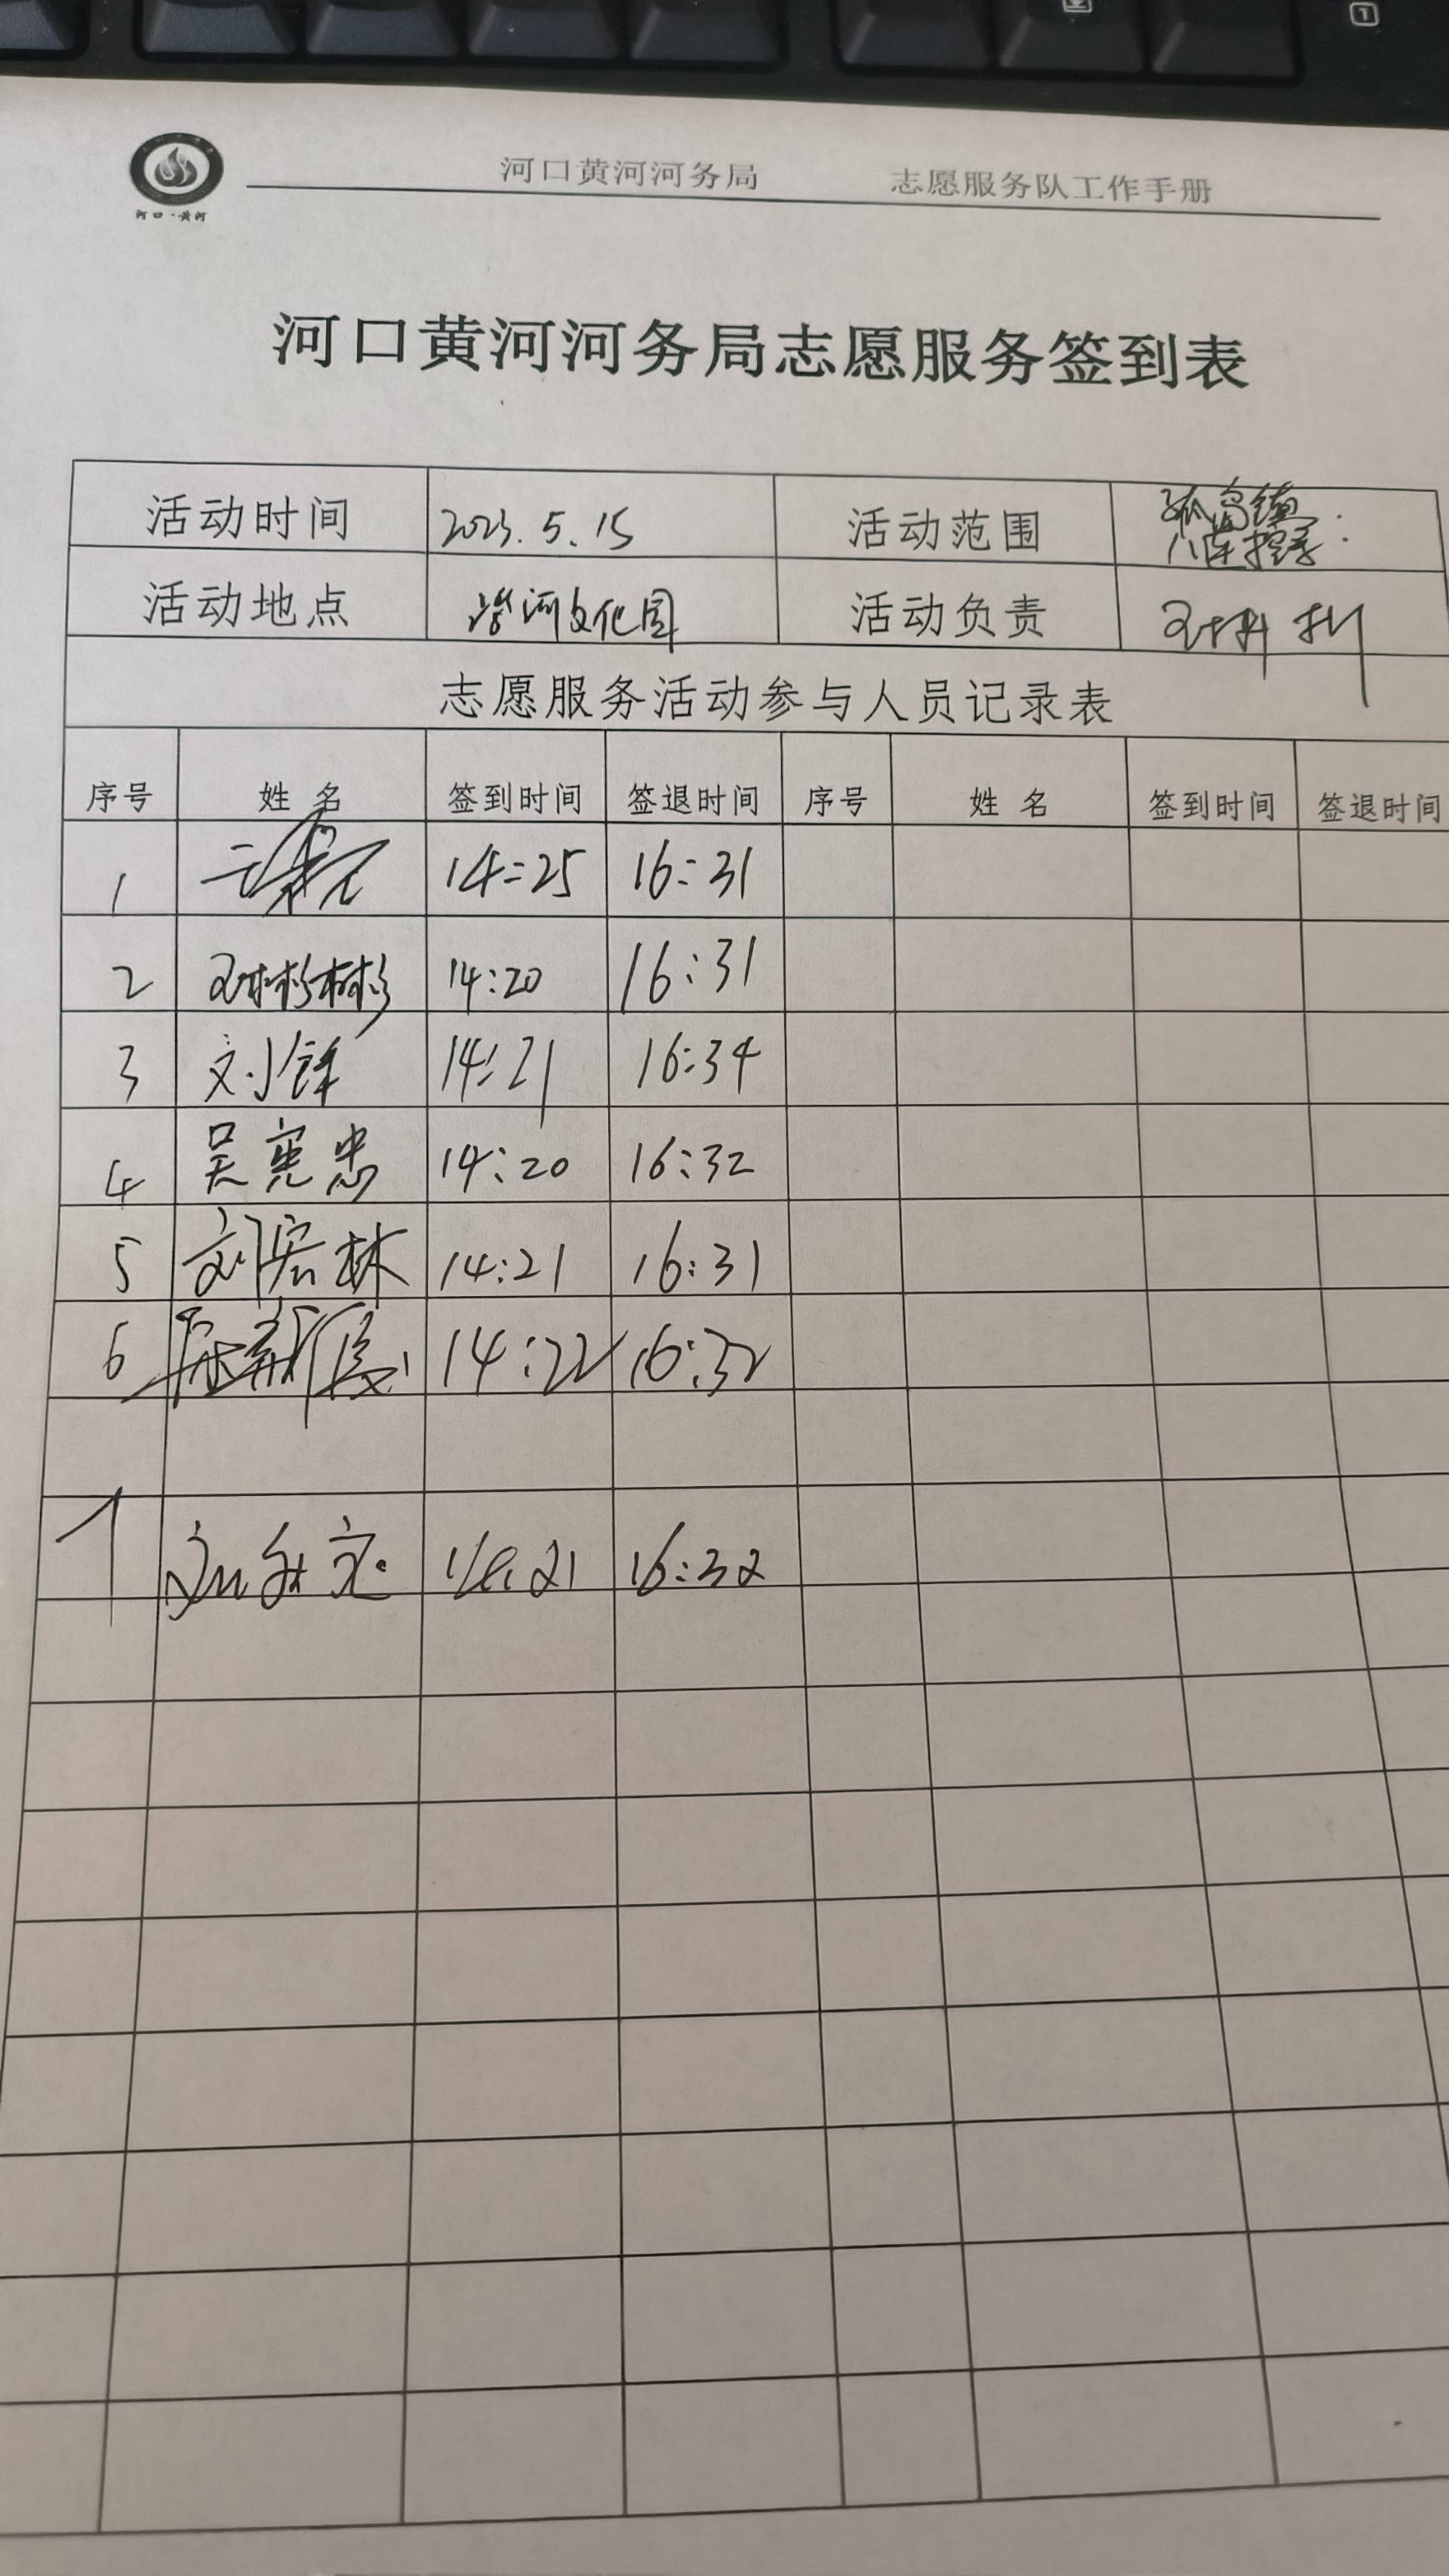 河口·黄河
河口黄河河务局 志愿服务队工作手册
河口黄河河务局志愿服务签到表
活动时间 2023.5.15 活动范围 孤岛镇
活动地点 河文化园 活动负责
志愿服务活动参与人员记录表
序号 姓名 签到时间 签退时间 序号 姓名 签到时间 签退时间
1 14:25 16:31
2 14:20 16:31
3 刘锋 14:21 16:34
4 吴宪忠 14:20 16:32
5 刘宏林 14:21 16:31
6 14:22 16:32
14:21 16:32